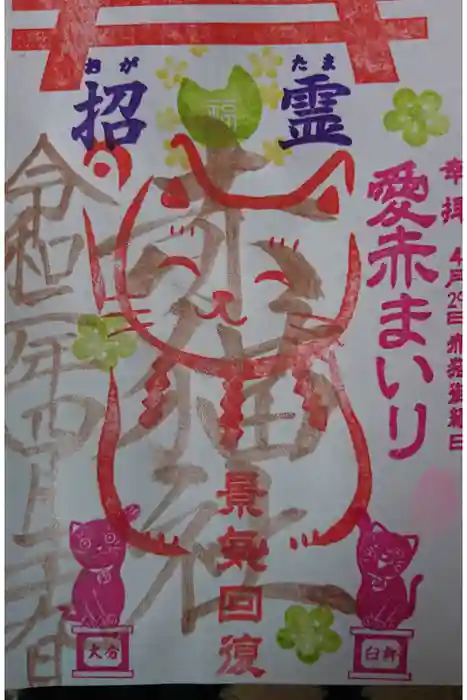 おが たま
招 霊
福
幸拝 4月29日 赤猫御縁日
愛赤まいり
赤猫社
令和二年四月
景気回復
大分
臼杵